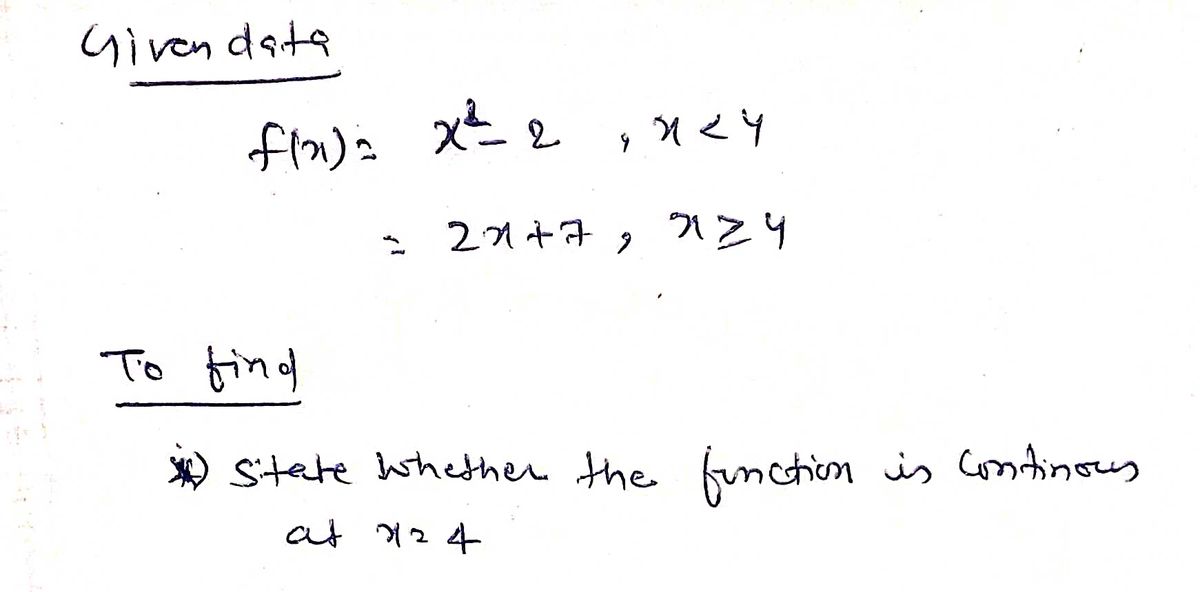 Given data
f(x) = x² - 2 , x < 4
= 2x + 7 , x ≥ 4
To find
i) State whether the function is Continous
at x = 4